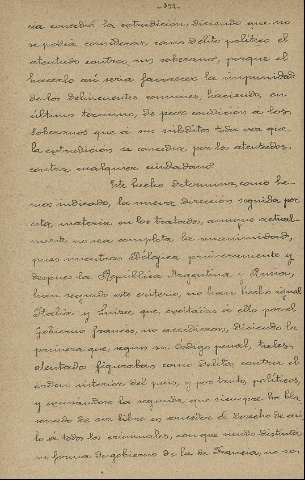 cia concedió la extradición, diciendo que no
se podía considerar, como delito político el
atentado contra un soberano, porque el
hacerlo así sería favorecer la impunidad
de los delincuentes comunes, haciendo, en
último término, de peor condición a los
soberanos que a sus súbditos toda vez que
la extradición se concede por los atentados,
contra cualquier ciudadano.
Este hecho determina, como he-
mos indicado, la nueva dirección seguida por
esta materia en los tratados, aunque actual-
mente no sea completa la unanimidad,
pues mientras Bélgica primeramente y
después la República Argentina y Rusia,
han seguido este criterio, no han hecho igual
Italia y Suiza que, excitadas a ello por el
Gobierno francés, no accedieron, diciendo la
primera que, según su Código penal, tales
atentados figuraban como delitos contra el
orden interior del país, y por tanto, políticos,
y la segunda que siempre ha
de ser libre en conceder el derecho de asi-
lo a todos los criminales, con que siendo distinta
su forma de gobierno de la de Francia, no se